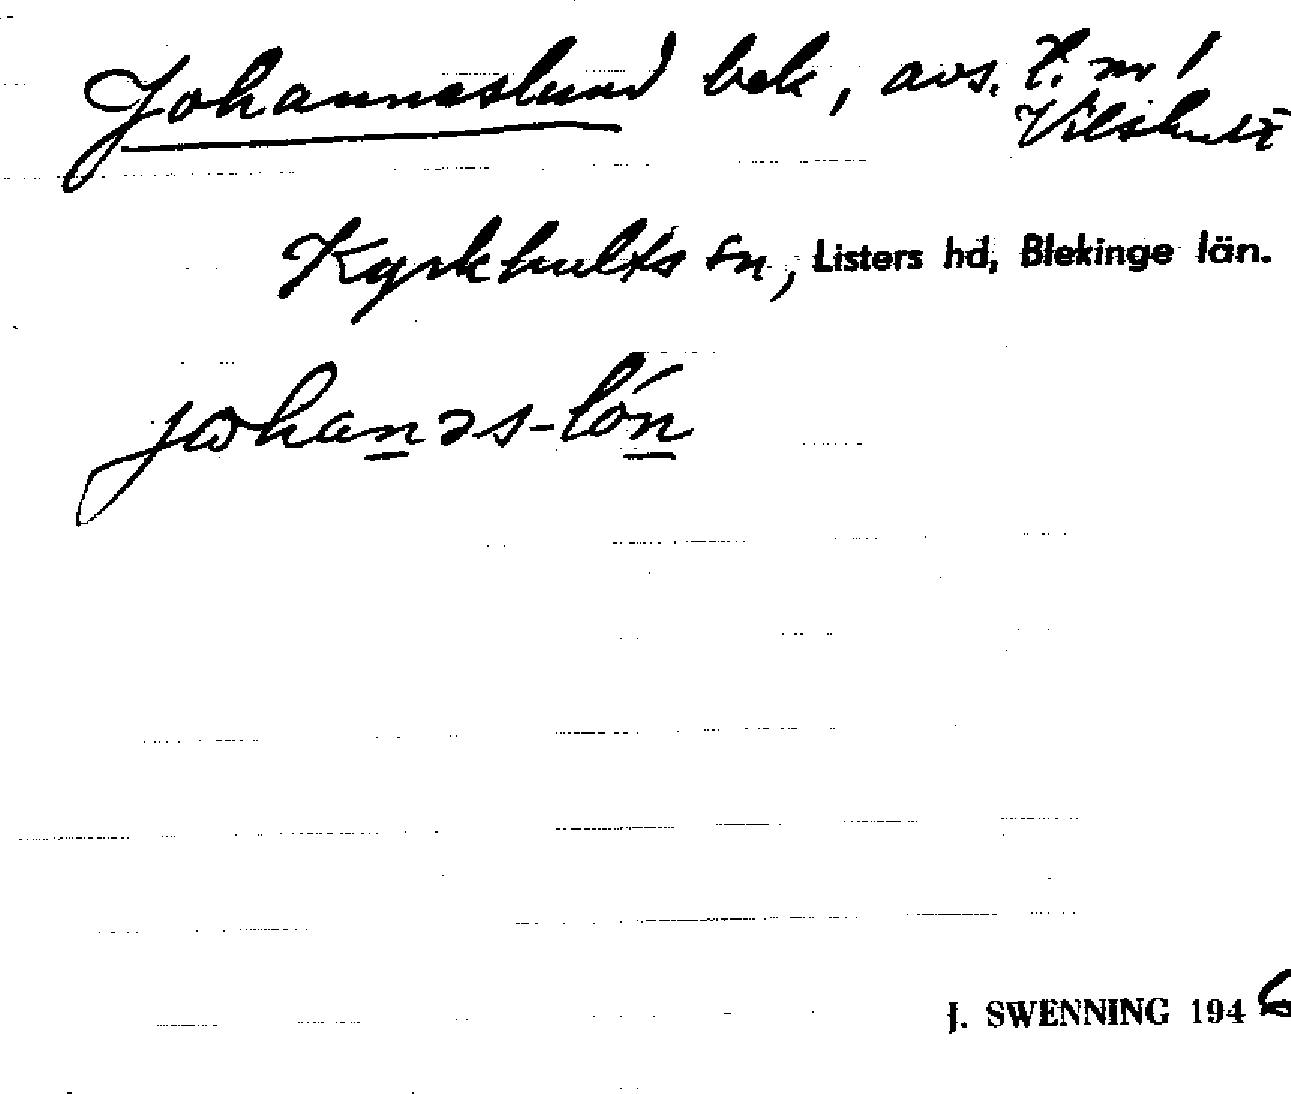 Johanneslund bek, avs. t. nr 1
Vilshult
Kyrkhults sn, Listers hd, Blekinge län.
johanəs-lón
J. SWENNING 1946